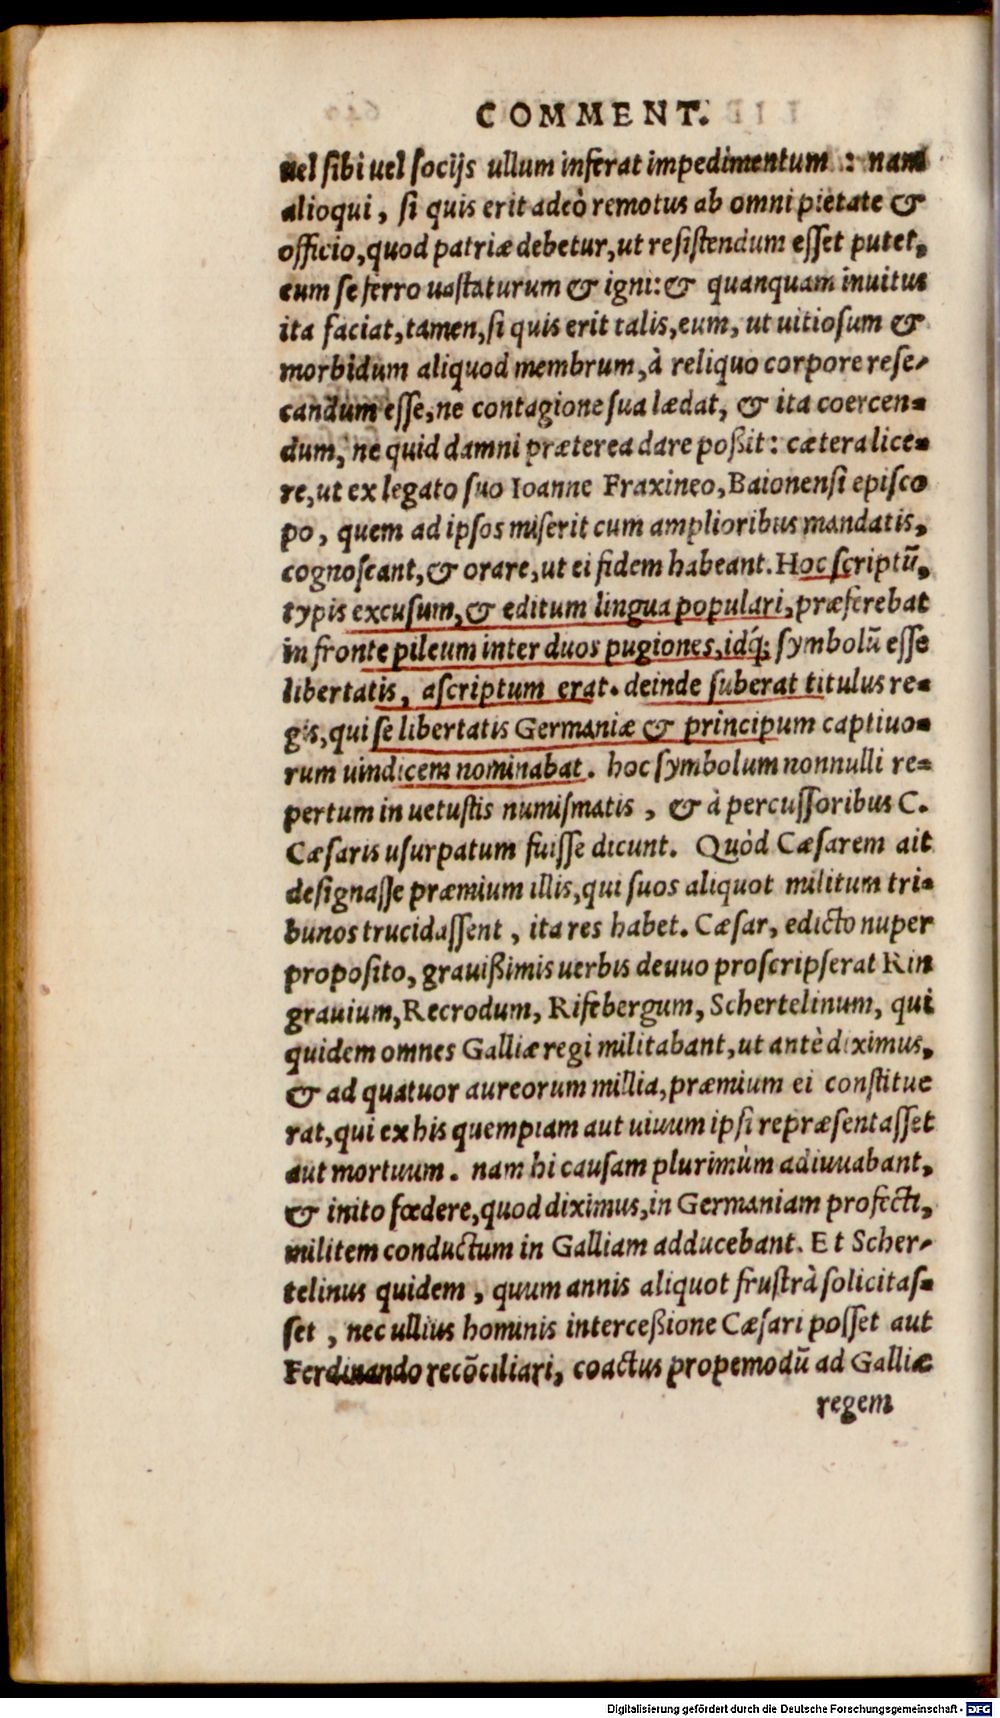 COMMENT.
uel sibi uel socijs ullum inferat impedimentum : nam
alioqui, si quis erit adeò remotus ab omni pietate &
officio, quod patriæ debetur, ut resistendum esset putet,
eum se ferro uastaturum & igni: & quanquam inuitus
ita faciat, tamen, si quis erit talis, eum, ut uitiosum &
morbidum aliquod membrum, à reliquo corpore rese-
candum esse, ne contagione sua lædat, & ita coercen-
dum, ne quid damni præterea dare poßit: cætera lice-
re, ut ex legato suo Ioanne Fraxineo, Baionensi episco
po, quem ad ipsos miserit cum amplioribus mandatis,
cognoscant, & orare, ut ei fidem habeant. Hoc scriptū,
typis excusum, & editum lingua populari, præferebat
in fronte pileum inter duos pugiones, idq́; symbolū esse
libertatis, ascriptum erat. deinde suberat titulus re-
gis, qui se libertatis Germaniæ & principum captiuo-
rum uindicem nominabat. hoc symbolum nonnulli re-
pertum in uetustis numismatis, & à percussoribus C.
Cæsaris usurpatum fuisse dicunt. Quòd Cæsarem ait
designasse præmium illis, qui suos aliquot militum tri-
bunos trucidassent, ita res habet. Cæsar, edicto nuper
proposito, grauißimis uerbis deuuo proscripserat Rin
grauium, Recrodum, Rifebergum, Schertelinum, qui
quidem omnes Galliæ regi militabant, ut antè diximus,
& ad quatuor aureorum millia, præmium ei constitue
rat, qui ex his quempiam aut uiuum ipsi repræsentasset
aut mortuum. nam hi causam plurimùm adiuuabant,
& inito fœdere, quod diximus, in Germaniam profecti,
militem conductum in Galliam adducebant. Et Scher-
telinus quidem, quum annis aliquot frustrà solicitas-
set, nec ullius hominis interceßione Cæsari posset aut
Ferdinando recōciliari, coactus propemodū ad Galliæ
regem
Digitalisierung gefördert durch die Deutsche Forschungsgemeinschaft - DFG